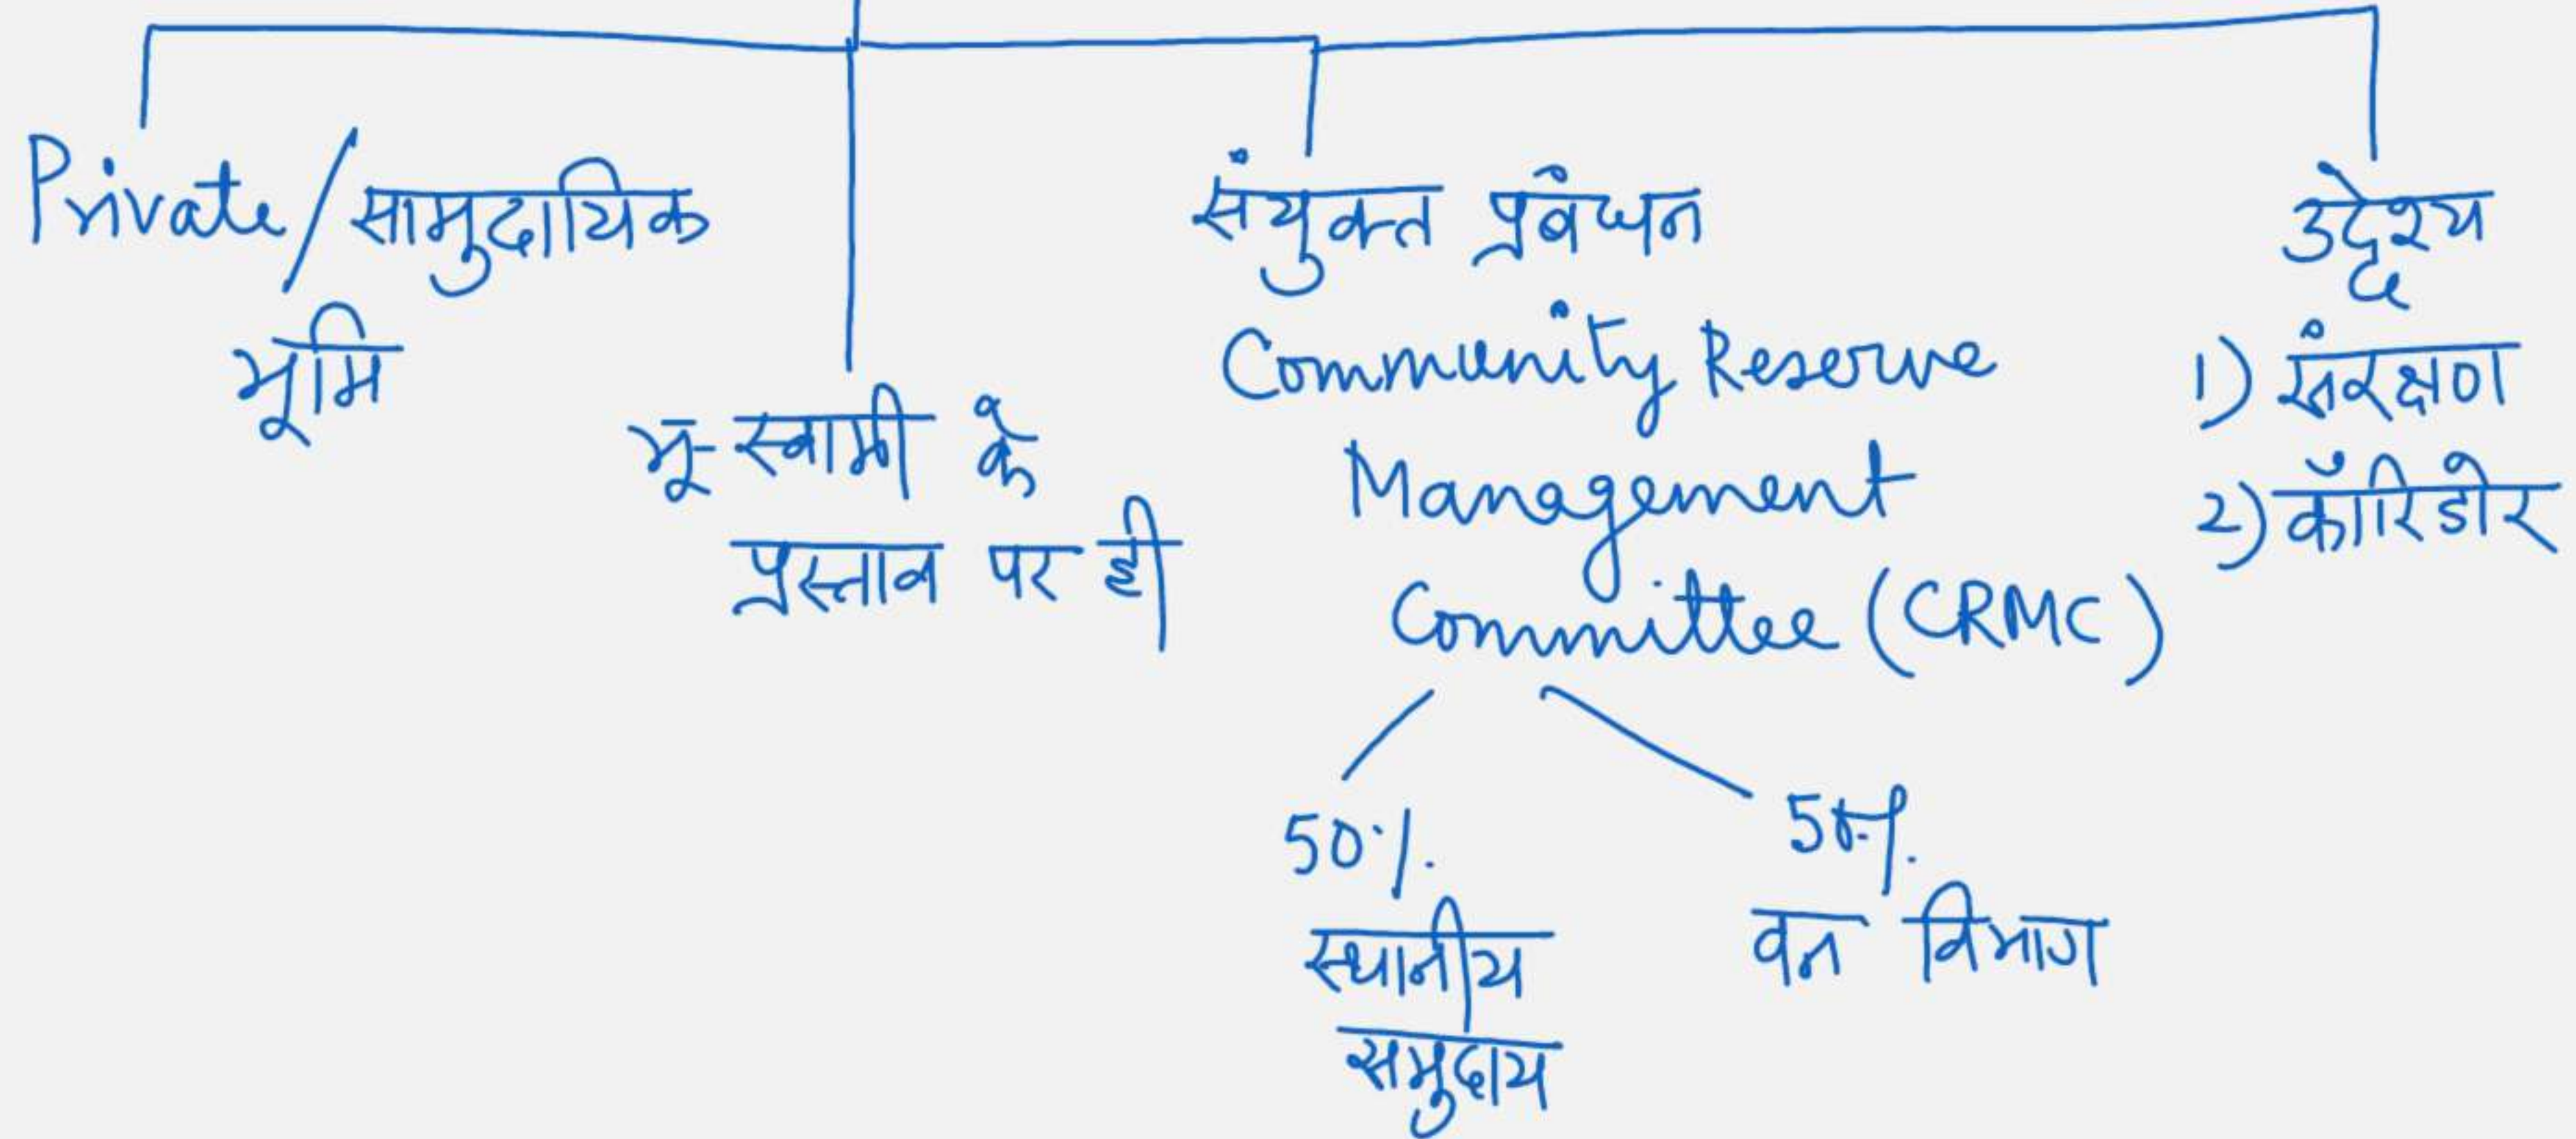 Private/सामुदायिक
भूमि
भू-स्वामी के
प्रस्ताव पर ही
संयुक्त प्रबंधन
Community Reserve
Management
Committee (CRMC)
50%
स्थानीय
समुदाय
50%
वन विभाग
उद्देश्य
1) संरक्षण
2) कॉरिडोर